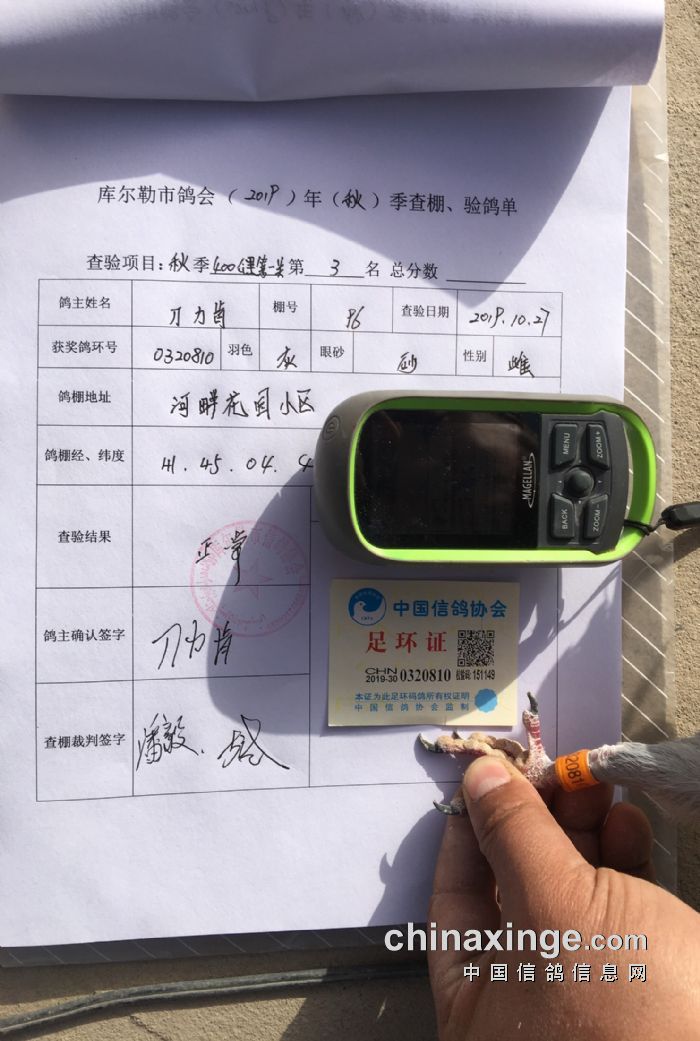 库尔勒市鸽会（2019）年（秋）季查棚、验鸽单
查验项目：秋季400 第 3 名 总分数
鸽主姓名 刀力肯 棚号 96 查验日期 2019.10.27
获奖鸽环号 0320810 羽色 灰 眼砂 砂 性别 雌
鸽棚地址 河畔花园小区
鸽棚经、纬度 41.45.04.4
查验结果 正常
鸽主确认签字 刀力肯
查棚裁判签字 潘毅
MAGELLAN
MENU
ZOOM+
BACK
ZOOM-
中国信鸽协会
足环证
CHN
2019-30 0320810 校验码:151149
本证为此足环码鸽所有权证明
中国信鸽协会监制
2081
chinaxinge.com
中国信鸽信息网